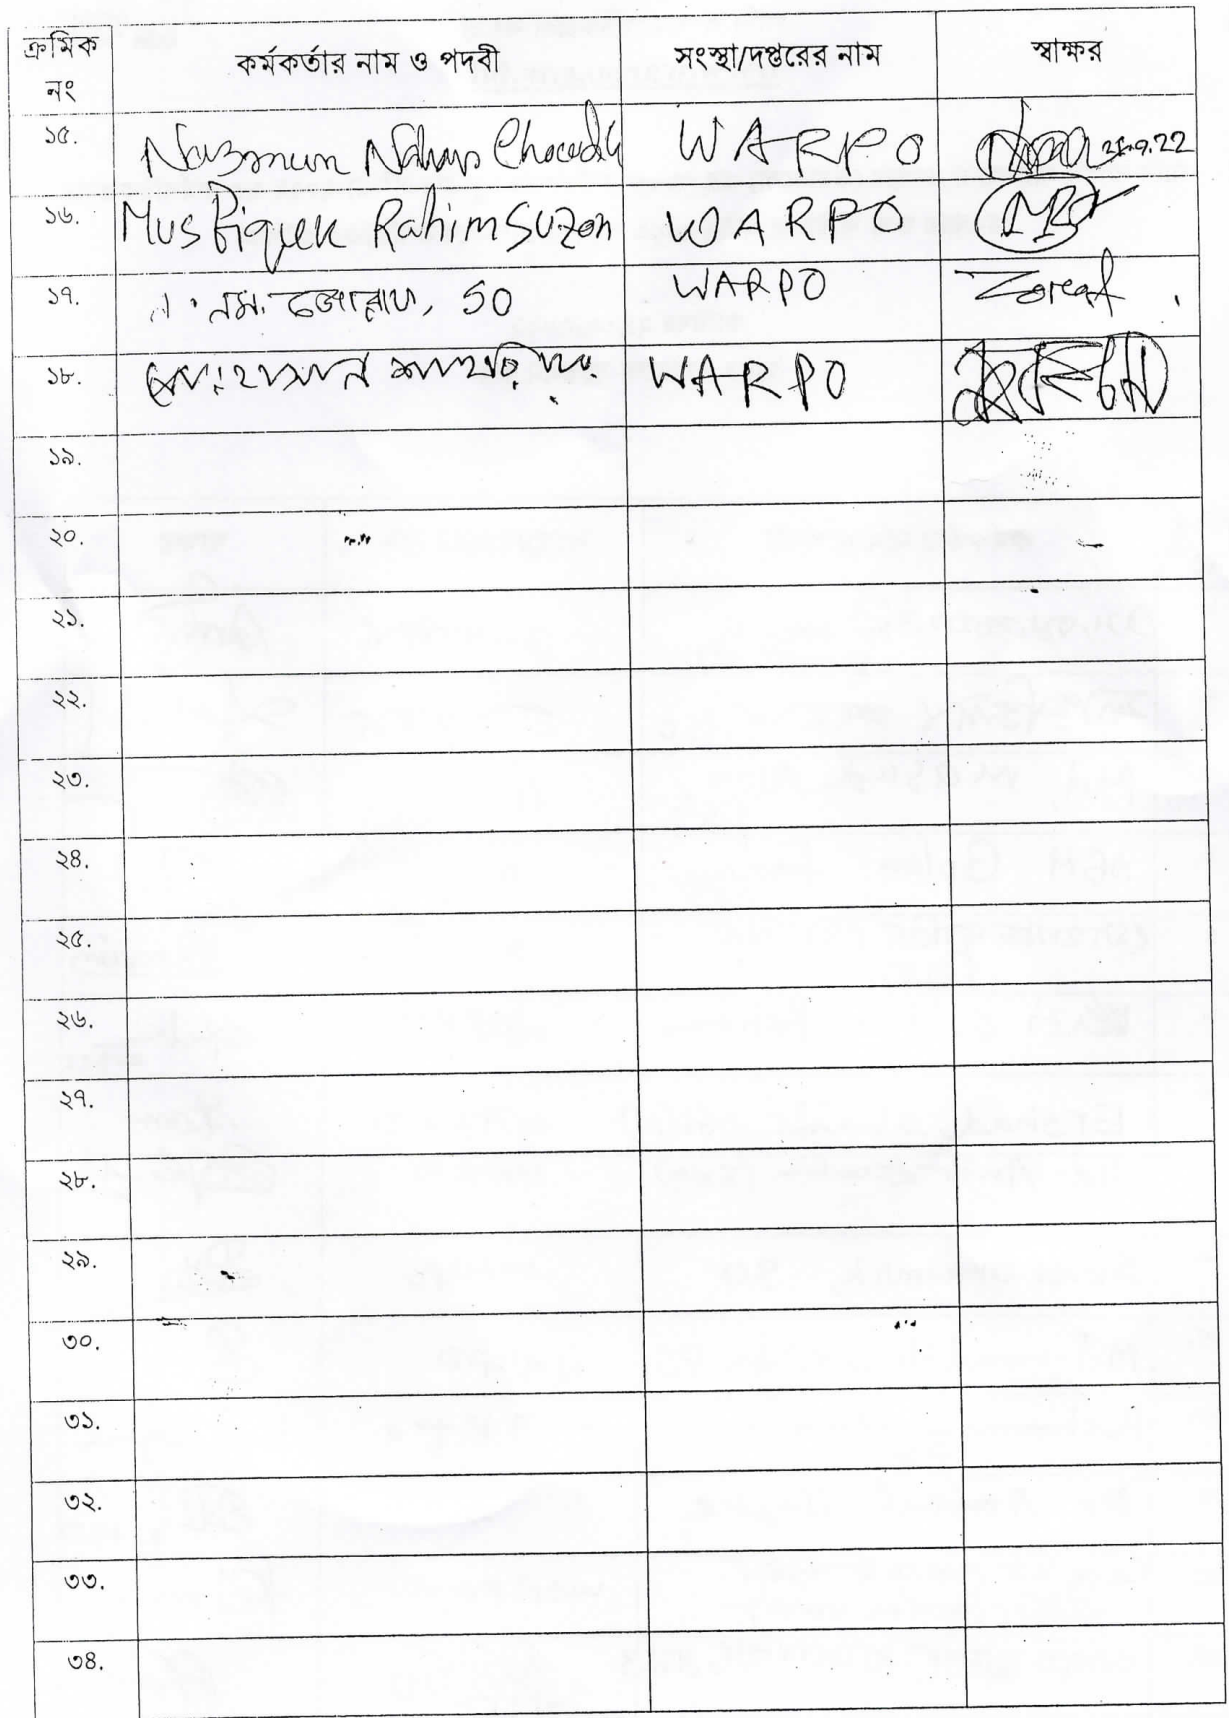 ক্রমিক নং কর্মকর্তার নাম ও পদবী সংস্থা/দপ্তরের নাম স্বাক্ষর
১৫. Nazmun Nahar WARPO
১৬. Musfiquek Rahim Suzon WARPO
১৭. SO WARPO
১৮. WARPO
১৯.
২০.
২১.
২২.
২৩.
২৪.
২৫.
২৬.
২৭.
২৮.
২৯.
৩০.
৩১.
৩২.
৩৩.
৩৪.